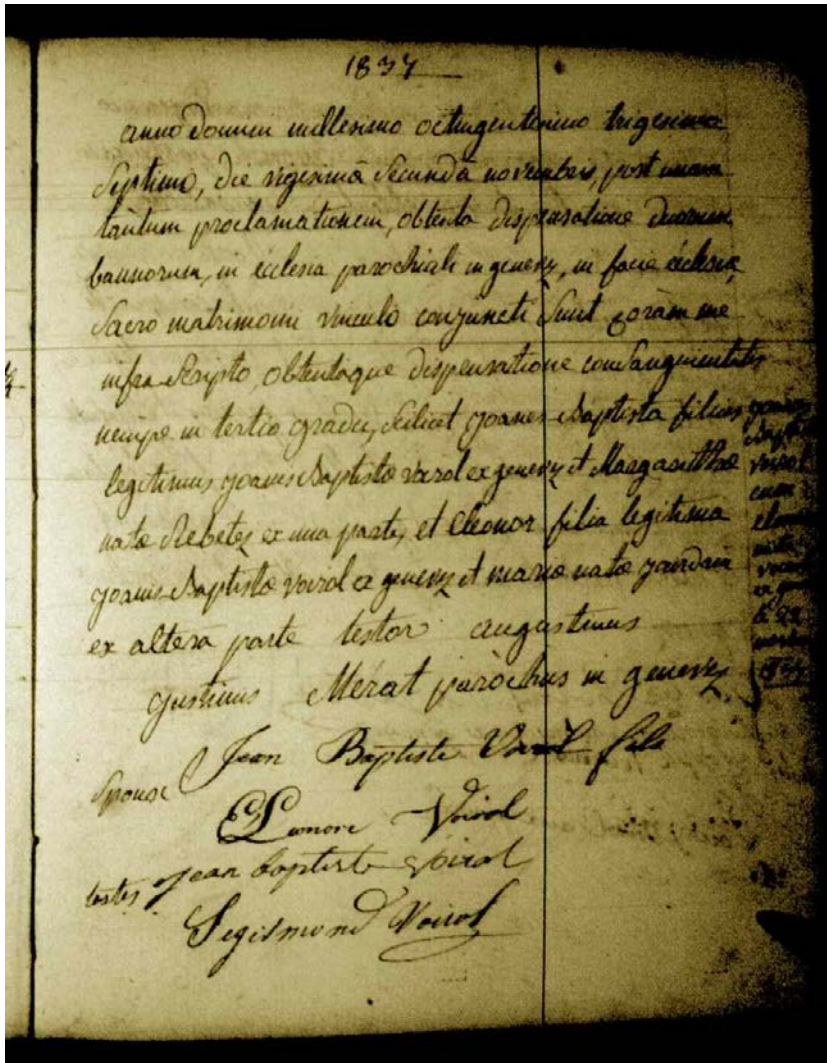 1837
anno Domini millesimo octingentesimo trigesimo
Septimo, die vigesimâ Secundâ novembris, post unam
tantum proclamationem, obtentâ dispensatione duorum
bannorum, in ecclesia parochiali in genevez, in facie ecclesiæ
Sacro matrimonii vinculo conjuncti Sunt coràm me
infra Scripto, obtentaque dispensatione consanguinitatis
nempe in tertio gradu, Scilicet joanes Baptista filius
legitimus joanis Baptistæ voirol ex genevez et Margarithæ
natæ Rebetez ex una parte, et Eleonor filia legitima
joanis Baptistæ voirol ex genevez et mariæ natæ jourdain
ex altera parte testor augustinus
justinus Mérat parochus in genevez
Sponsi Jean Baptiste Voirol fils
Eleonore Voirol
testes Jean baptiste Voirol
Segismond Voirol
joanes
Baptis
voirol
cum
eleonor
nata
voirol
ex gene
le 22
1837